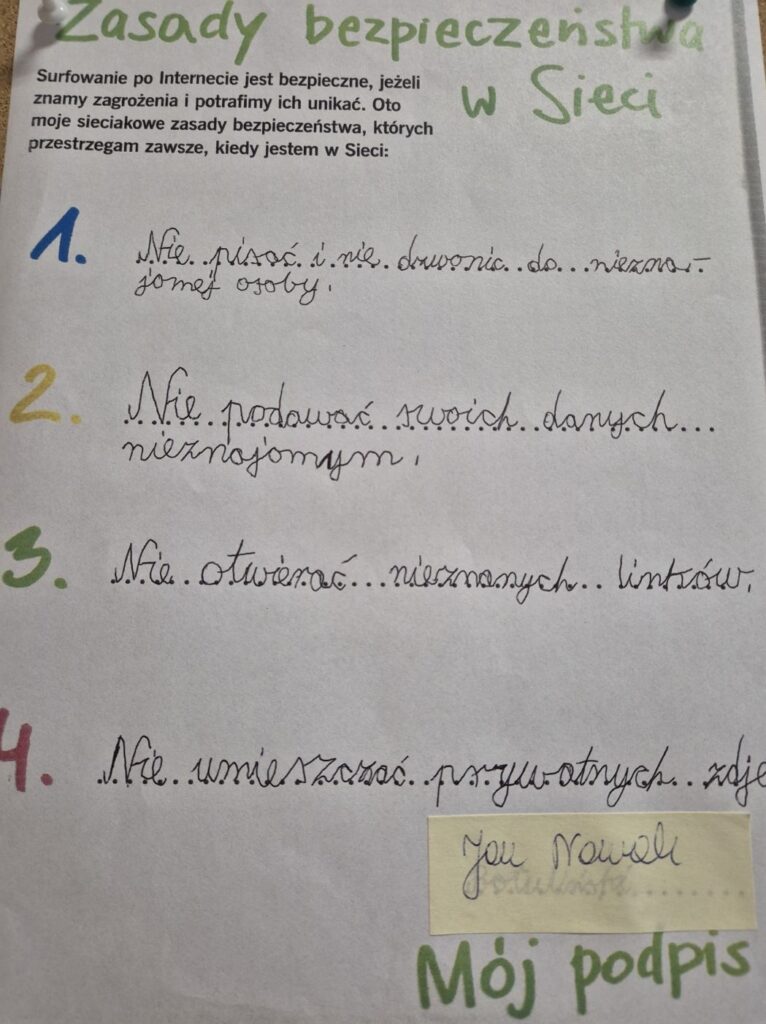 Zasady bezpieczeństwa
w Sieci
Surfowanie po Internecie jest bezpieczne, jeżeli
znamy zagrożenia i potrafimy ich unikać. Oto
moje sieciakowe zasady bezpieczeństwa, których
przestrzegam zawsze, kiedy jestem w Sieci:
1. Nie pisać i nie dzwonic do niezna-
jomej osoby.
2. Nie podawać swoich danych
nieznajomym.
3. Nie otwierać nieznanych linków.
4. Nie umieszczać prywatnych zdję
Jan Nowak
Mój podpis